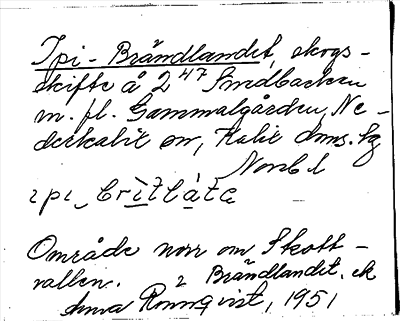 Ipi-Brändlandet, skogs-
skifte å 2 47 Smedbacken
m. fl. Gammalgården, Ne-
derkalix sn, Kalix doms. hg
Norrb. l
Område norr om Skatt-
vallen. 2 Brändlandet. ek
Anna Rönnqvist, 1951